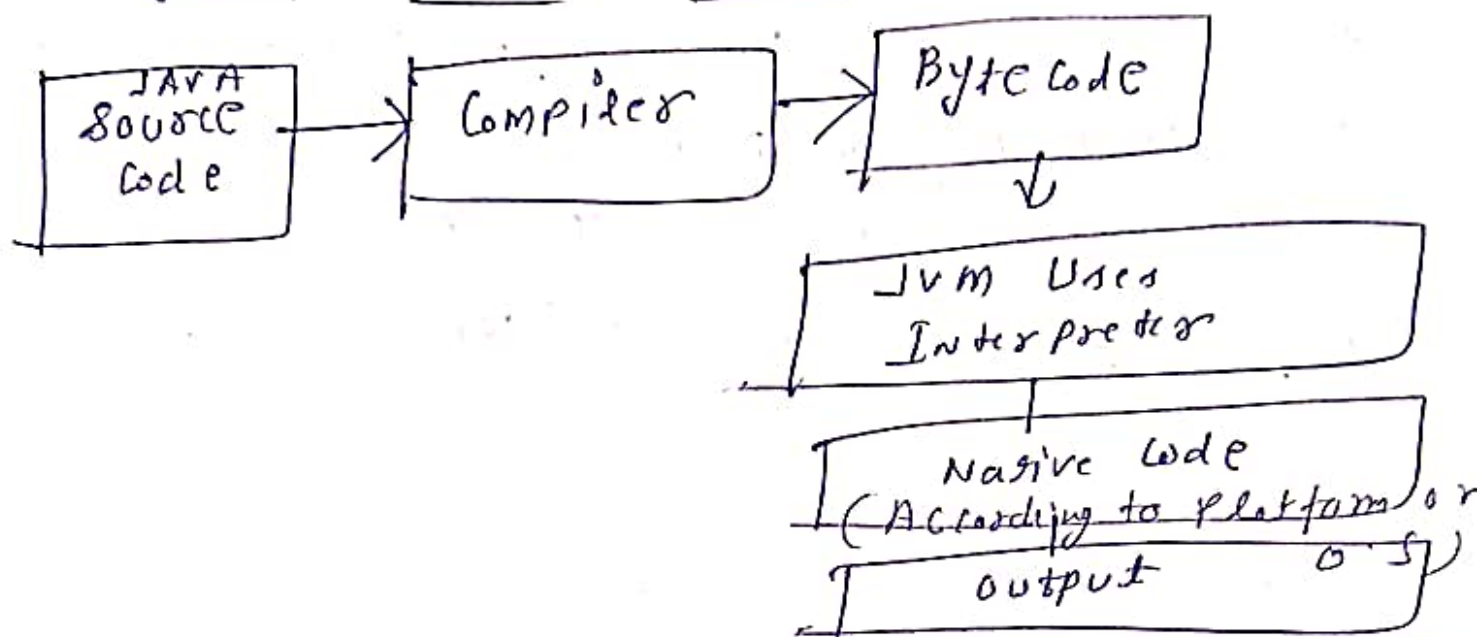 JAVA
Source
Code
Compiler
Byte Code
JVM Uses
Interpreter
Native Code
(According to Platform or
O.S)
output